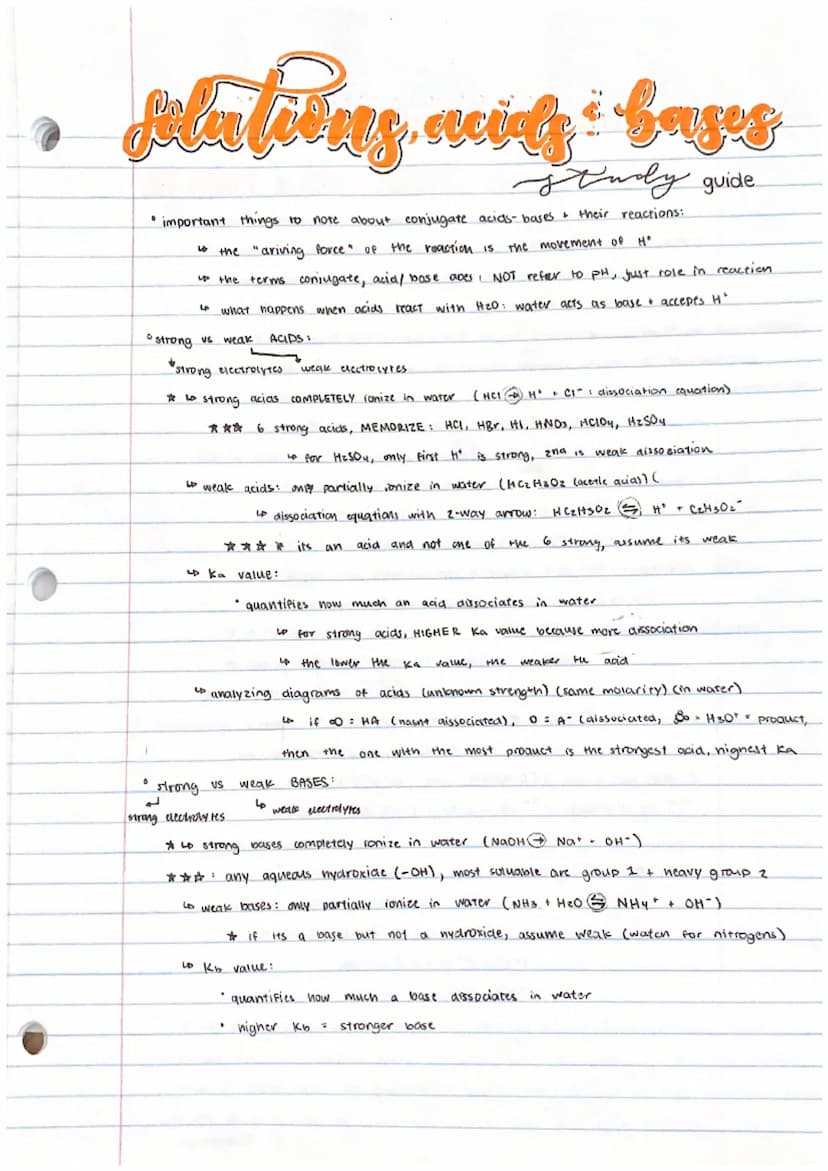 solutions, acids & bases
study guide
• important things to note about conjugate acids-bases + their reactions:
↳ the "driving force" of the reaction is the movement of H⁺
↳ the terms conjugate, acid/base does NOT refer to pH, just role in reaction
↳ what happens when acids react with H2O: water acts as base + accepts H⁺
• strong vs weak ACIDS:
strong electrolytes weak electrolytes
★ ↳ strong acids COMPLETELY ionize in water (HCl → H⁺ + Cl⁻ : dissociation equation)
★★★ 6 strong acids, MEMORIZE: HCl, HBr, HI, HNO3, HClO4, H2SO4
↳ for H2SO4, only first H⁺ is strong, 2nd is weak dissosiation
↳ weak acids: only partially ionize in water (HC2H3O2 (acetic acid)) (
↳ dissociation equations with 2-way arrow: HC2H3O2 ⇌ H⁺ + C2H3O2⁻
★★★ if its an acid and not one of the 6 strong, assume its weak
↳ Ka value:
• quantifies how much an acid dissociates in water
↳ for strong acids, HIGHER Ka value because more dissociation
↳ the lower the Ka value, the weaker the acid
↳ analyzing diagrams of acids (unknown strength) (same molarity) (in water)
↳ if = HA (hasnt dissociated), O = A⁻ (dissociated, = H3O⁺ = product,
then the one with the most product is the strongest acid, highest Ka
• strong vs weak BASES:
strong electrolytes ↳ weak electrolytes
★ ↳ strong bases completely ionize in water (NaOH → Na⁺ + OH⁻)
★★★ : any aqueous hydroxide (-OH), most soluable are group 1 + heavy group 2
↳ weak bases: only partially ionize in water (NH3 + H2O ⇌ NH4⁺ + OH⁻)
★ if its a base but not a hydroxide, assume weak (watch for nitrogens)
↳ Kb value:
• quantifies how much a base dissociates in water
• higher Kb = stronger base